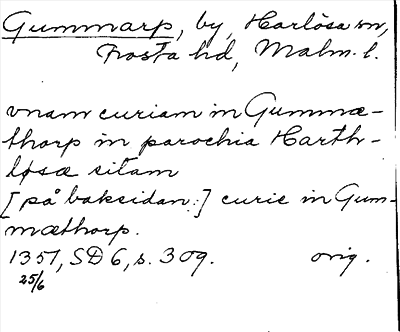 Gummarp, by, Harlösa sn,
Frosta hd, Malm. l.
vnam curiam in Gummæ-
thorp in parochia Harth-
løsæ sitam
[på baksidan:] curie in Gum-
mæthorp.
1351, SD 6, s. 309. orig.
25/6